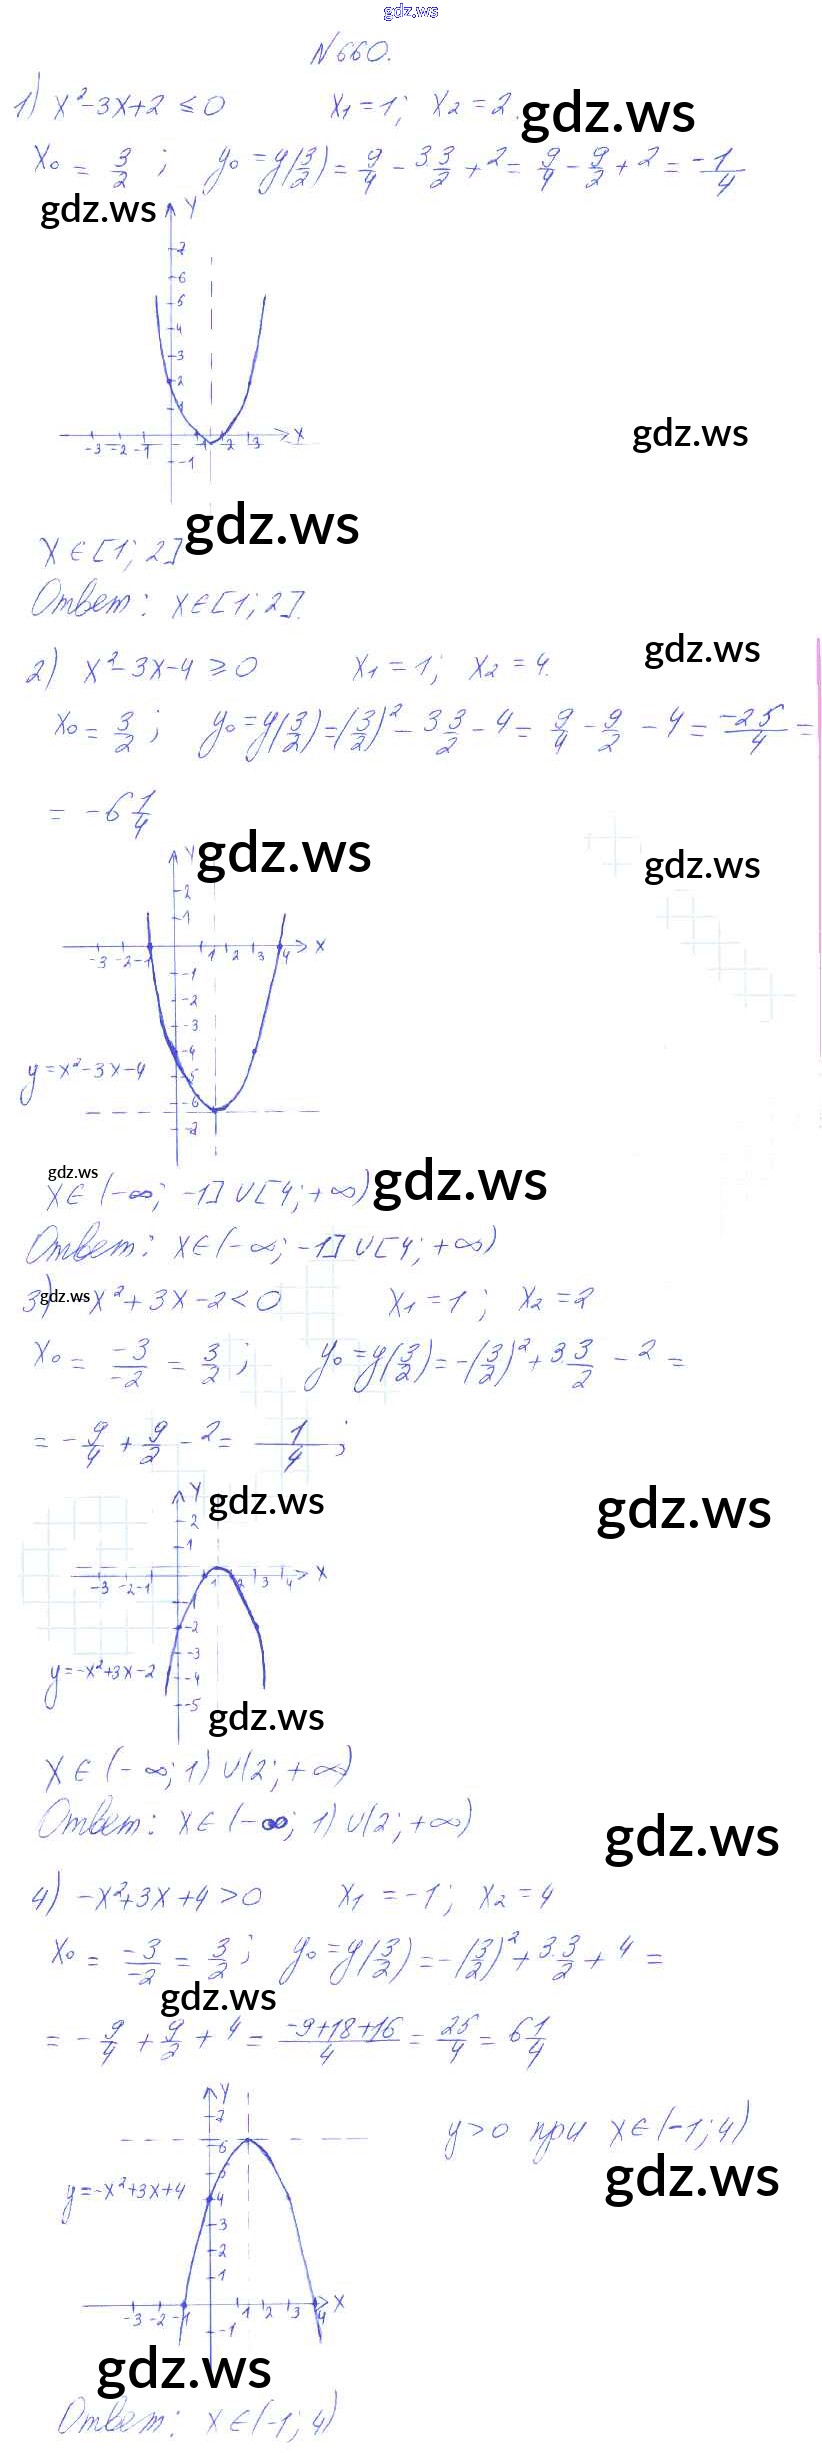 gdz.ws
N660.
1) x²-3x+2 ≤ 0 x₁=1; x₂=2. gdz.ws
x₀ = 3/2 ; y₀ = y(3/2) = 9/4 - 3·3/2 + 2 = 9/4 - 9/2 + 2 = -1/4
gdz.ws y
2
6
5
4
3
2
1
-3 -2 -1 1 2 3 x
-1
gdz.ws
gdz.ws
x∈[1; 2]
Ответ: x∈[1; 2].
2) x²-3x-4 ≥ 0 x₁=1; x₂=4. gdz.ws
x₀ = 3/2 ; y₀ = y(3/2) = (3/2)² - 3·3/2 - 4 = 9/4 - 9/2 - 4 = -25/4 =
= -6 1/4
y gdz.ws gdz.ws
2
1
-3 -2 -1 1 2 3 4 x
-1
-2
-3
-4
y=x²-3x-4
-5
-6
-2
gdz.ws gdz.ws
x∈(-∞; -1]∪[4; +∞)
Ответ: x∈(-∞; -1]∪[4; +∞)
gdz.ws
3) -x²+3x-2<0 x₁=1; x₂=2
x₀ = -3/-2 = 3/2 ; y₀ = y(3/2) = -(3/2)² + 3·3/2 - 2 =
= -9/4 + 9/2 - 2 = 1/4 ;
y gdz.ws gdz.ws
2
1
-3 -2 -1 1 2 3 4 x
-1
-2
-3
y=-x²+3x-2
-4
-5
gdz.ws
x∈(-∞; 1)∪(2; +∞)
Ответ: x∈(-∞; 1)∪(2; +∞)
gdz.ws
4) -x²+3x+4>0 x₁=-1; x₂=4
x₀ = -3/-2 = 3/2 ; y₀ = y(3/2) = -(3/2)² + 3·3/2 + 4 =
gdz.ws
= -9/4 + 9/2 + 4 = -9+18+16/4 = 25/4 = 6 1/4
y
2
y>0 при x∈(-1; 4)
6
gdz.ws
5
y=-x²+3x+4
4
3
2
1
-3 -2 -1 1 2 3 4 x
-1
gdz.ws
Ответ: x∈(-1; 4)